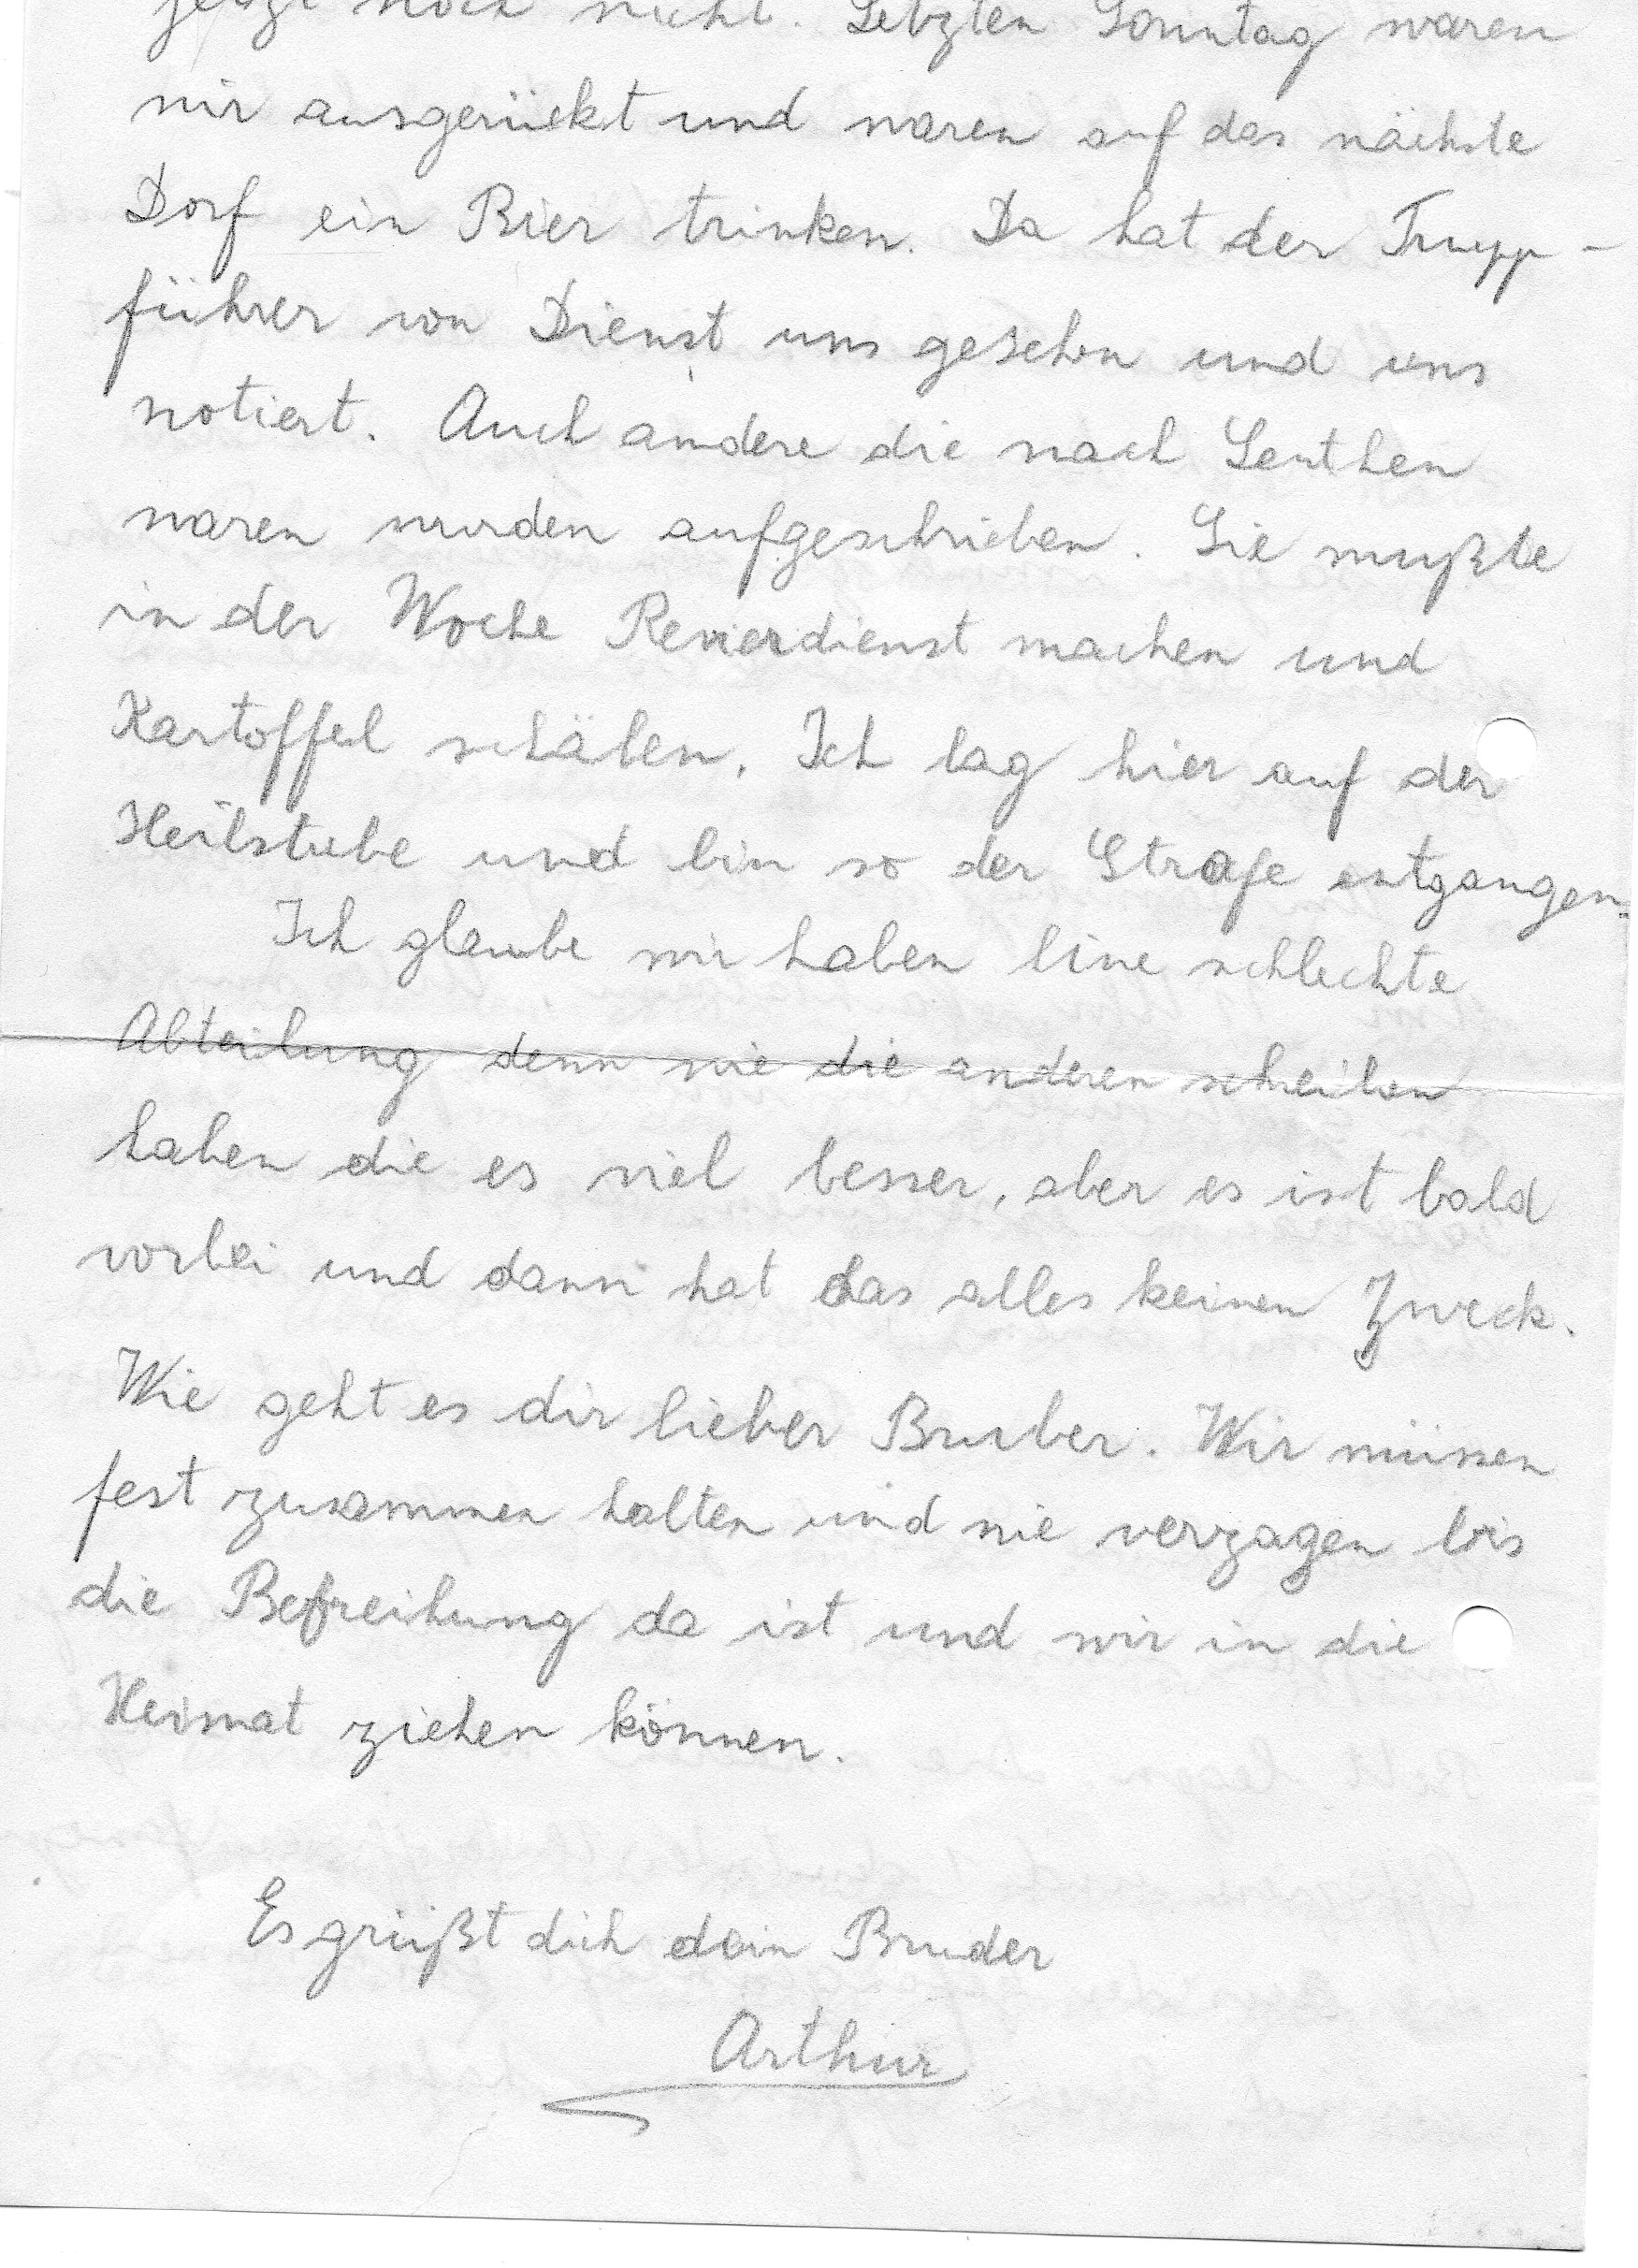 jetzt noch nicht. Letzten Sonntag waren
wir ausgerückt und waren auf das nächste
Dorf ein Bier trinken. Da hat der Trupp-
führer von Dienst uns gesehen und uns
notiert. Auch andere die nach Leuthen
waren wurden aufgeschrieben. Sie mußte
in der Woche Revierdienst machen und
Kartoffel schälen. Ich lag hier auf der
Heilstube und bin so der Strafe entgangen.
Ich glaube wir haben eine schlechte
Abteilung denn wie die anderen schreiben
haben die es viel besser, aber es ist bald
vorbei und dann hat das alles keinen Zweck.
Wie geht es dir lieber Bruder. Wir müssen
fest zusammen halten und nie verzagen bis
die Befreihung da ist und wir in die
Heimat ziehen können.
Es grüßt dich dein Bruder
Arthur